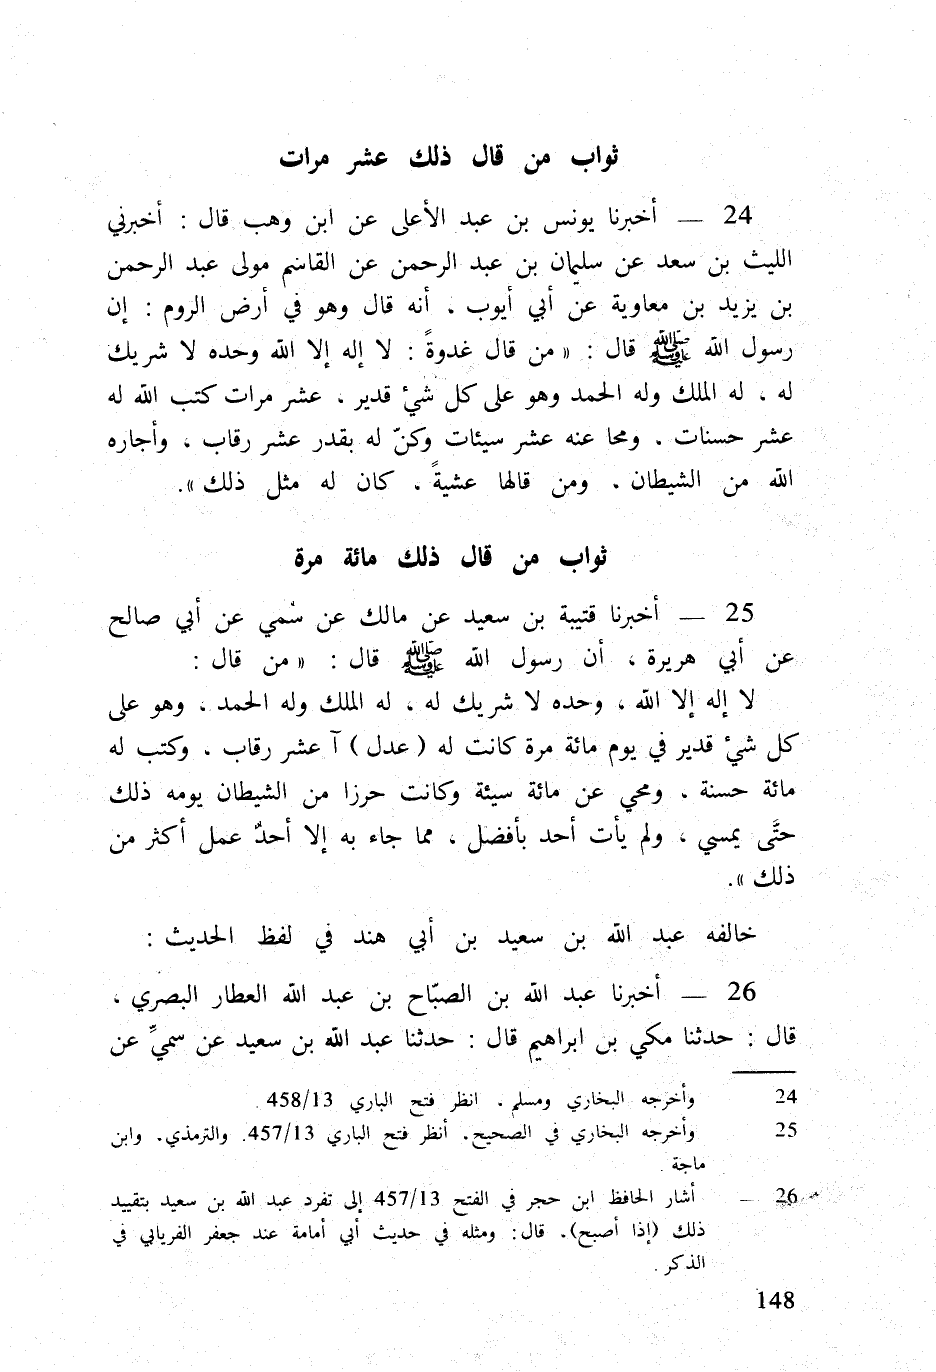 ثواب من قال ذلك عشر مرات
24 — أخبرنا يونس بن عبد الأعلى عن ابن وهب قال : أخبرني
الليث بن سعد عن سليمان بن عبد الرحمن عن القاسم مولى عبد الرحمن
بن يزيد بن معاوية عن أبي أيوب . أنه قال وهو في أرض الروم : إن
رسول الله ﷺ قال : « من قال غدوةً : لا إله إلا الله وحده لا شريك
له ، له الملك وله الحمد وهو على كل شيٴ قدير ، عشر مرات كتب الله له
عشر حسنات . ومحا عنه عشر سيئات وكنّ له بقدر عشر رقاب ، وأجاره
الله من الشيطان . ومن قالها عشيةً . كان له مثل ذلك ».
ثواب من قال ذلك مائة مرة
25 — أخبرنا قتيبة بن سعيد عن مالك عن سُمي عن أبي صالح
عن أبي هريرة ، أن رسول الله ﷺ قال : « من قال :
لا إله إلا الله ، وحده لا شريك له ، له الملك وله الحمد . وهو على
كل شيٴ قدير في يوم مائة مرة كانت له ( عدل ) آ عشر رقاب . وكتب له
مائة حسنة . ومحي عن مائة سيئة وكانت حرزا من الشيطان يومه ذلك
حتَّى يمسي ، ولم يأت أحد بأفضل ، مما جاء به إلا أحدٌ عمل أكثر من
ذلك ».
خالفه عبد الله بن سعيد بن أبي هند في لفظ الحديث :
26 — أخبرنا عبد الله بن الصبّاح بن عبد الله العطار البصري ،
قال : حدثنا مكي بن ابراهيم قال : حدثنا عبد الله بن سعيد عن سميٍّ عن
24 وأخرجه البخاري ومسلم . انظر فتح الباري 458/13 .
25 وأخرجه البخاري في الصحيح. أنظر فتح الباري 457/13. والترمذي. وابن
ماجة .
26 — أشار الحافظ ابن حجر في الفتح 457/13 إلى تفرد عبد الله بن سعيد بتقييد
ذلك (إذا أصبح). قال: ومثله في حديث أبي أمامة عند جعفر الفريابي في
الذكر .
148